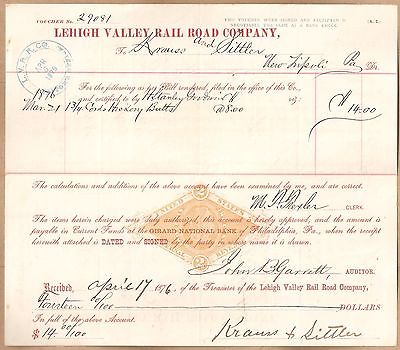 VOUCHER No. 29081
THIS VOUCHER WHEN SIGNED AND RECEIPTED IS
NEGOTIABLE THE SAME AS A BANK CHECK.
LEHIGH VALLEY RAIL ROAD COMPANY,
To Krauss and Sittler
New Tripoli Pa Dr.
L.V.R.R.CO.
APR
1876
For the following as per Bill rendered, filed in the office of this Co.,
and certified to by H Stanley Goodwin viz:
1876
Mar 21 1¾ Cords Hickory Butts @8.00 $ 14.00
The calculations and additions of the above account have been examined by me, and are correct.
CLERK.
The items herein charged were duly authorized, this account is hereby approved, and the amount is
payable in Current Funds at the GIRARD NATIONAL BANK of Philadelphia, Pa., when the receipt
herewith attached is DATED and SIGNED by the party in whose name it is drawn.
John B Garrett, AUDITOR.
Received, April 17 1876, of the Treasurer of the Lehigh Valley Rail Road Company,
Fourteen /100 DOLLARS
In full of the above Account.
$ 14 00/100 Krauss & Sittler